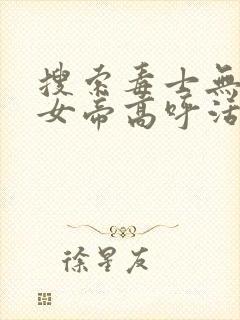 搜索毒士無
女帝高呼活
徐星友